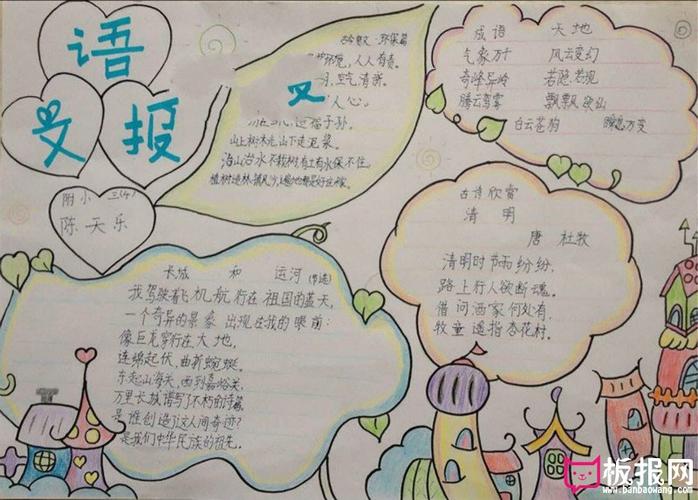 语
文
报
附小 三(4)
陈天乐
环保篇
人人有责。
空气清新。
人心。
子孙。
山上树木光,山下走泥浆。
治山治水不栽树,有土有水保不住。
成语 天地
气象万千 风云变幻
奇峰异岭 若隐若现
腾云驾雾 飘飘欲仙
白云苍狗 瞬息万变
古诗欣赏
清明
唐 杜牧
清明时节雨纷纷,
路上行人欲断魂。
借问酒家何处有,
牧童遥指杏花村。
长城 和 运河(节选)
我驾驶着飞机航行在祖国的蓝天,
一个奇异的景象出现在我的眼前:
像巨龙穿行在大地,
连绵起伏,曲折蜿蜒。
东起山海关,西到嘉峪关,
万里长城谱写了不朽的诗篇。
是谁创造了这人间奇迹?
是我们中华民族的祖先。
板报网
www.banbaowang.com